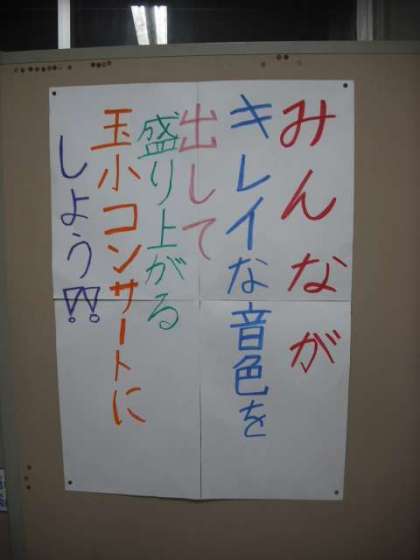 みんなが
キレイな音色を
出して
盛り上がる
玉小コンサートに
しよう!!